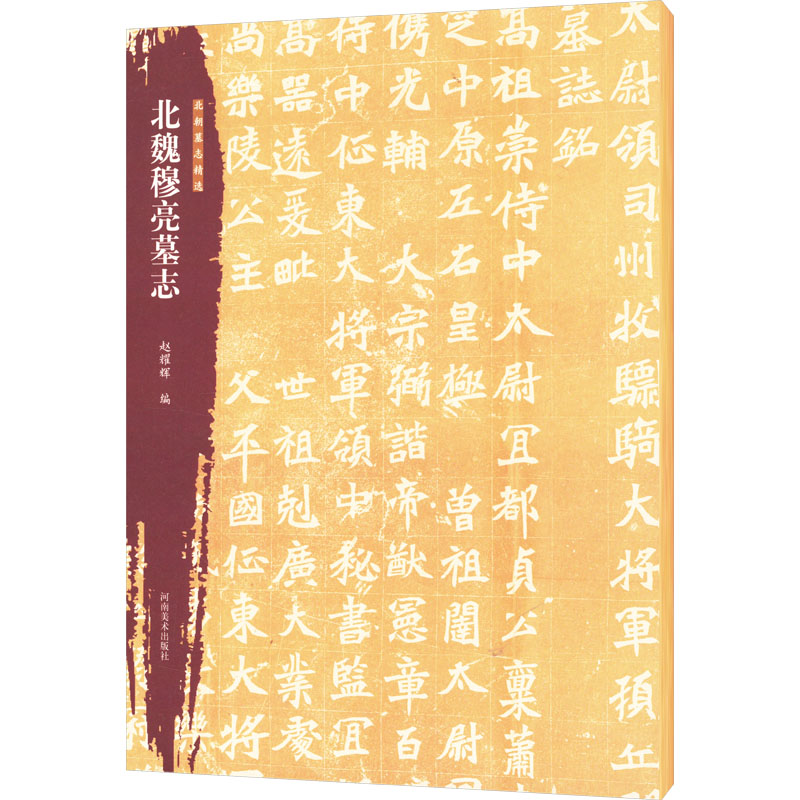 北朝墓志精选
北魏穆亮墓志
赵耀辉 编
河南美术出版社
太尉領司州牧驃騎大將軍頓丘
墓誌銘
高祖崇侍中太尉冝都貞公稟蕭
芝中原左右皇極 曾祖闥太尉
儁光輔 大宗弼諧帝猷憲章百
侍中征東大將軍領中秘書監冝
高器遠爰毗 世祖剋廣大業處
尚樂陵公主 父平國征東大將